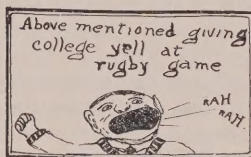 Above mentioned giving
college yell at
rugby game
RAH
RAH